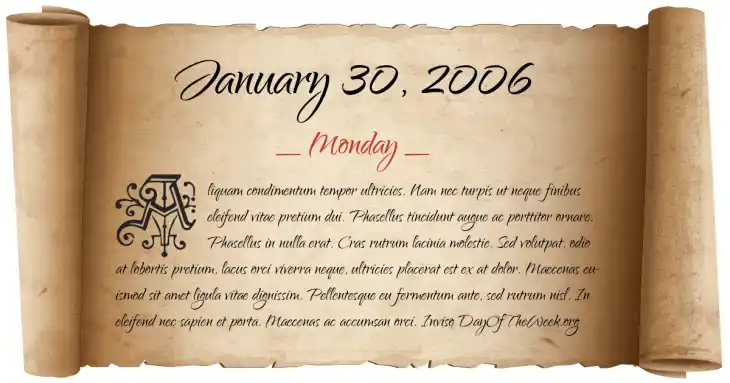 January 30, 2006
— Monday —
Aliquam condimentum tempor ultricies. Nam nec turpis ut neque finibus
eleifend vitae pretium dui. Phasellus tincidunt augue ac porttitor ornare.
Phasellus in nulla erat. Cras rutrum lacinia molestie. Sed volutpat, odio
at lobortis pretium, lacus orci viverra neque, ultricies placerat est ex at dolor. Maecenas eu-
ismod sit amet ligula vitae dignissim. Pellentesque eu fermentum ante, sed rutrum nisl. In
eleifend nec sapien et porta. Maecenas ac accumsan orci. Inviso DayOfTheWeek.org